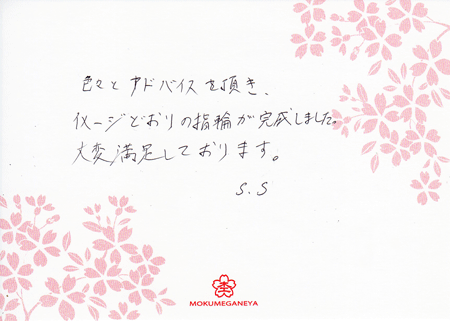 色々とアドバイスを頂き、
イメージどおりの指輪が完成しました。
大変満足しております。
S.S
MOKUMEGANEYA